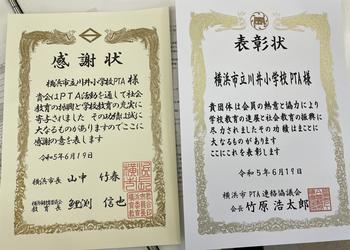 感謝状
横浜市立川井小学校PTA 様
貴会はPTA活動を通して社会
教育の振興と学校教育の充実に
寄与されました その功績は誠に
大なるものがありますのでここに
感謝の意を表します
令和5年6月19日
横浜市長 山中 竹春
横浜市教育委員会
教育長 鯉渕 信也
表彰状
横浜市立川井小学校PTA 様
貴団体は会員の熱意と協力により
学校教育の進展と社会教育の振興に
尽力されましたその功績はまことに
大なるものがあります
ここにこれを表彰します
令和5年6月19日
横浜市PTA連絡協議会
会長 竹原 浩太郎